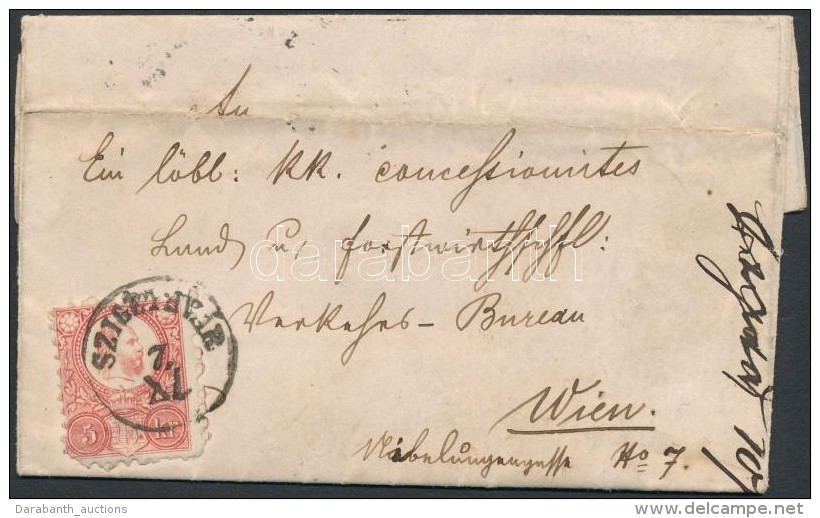 An
Ein löbl: kk. concessionirtes
Land u, forstwirthschftl:
Verkehrs- Bureau
Wien.
Nibelungengasse No 7.
7.
XI.
5 kr
darabanth
Darabanth_auctions
delcampe.net